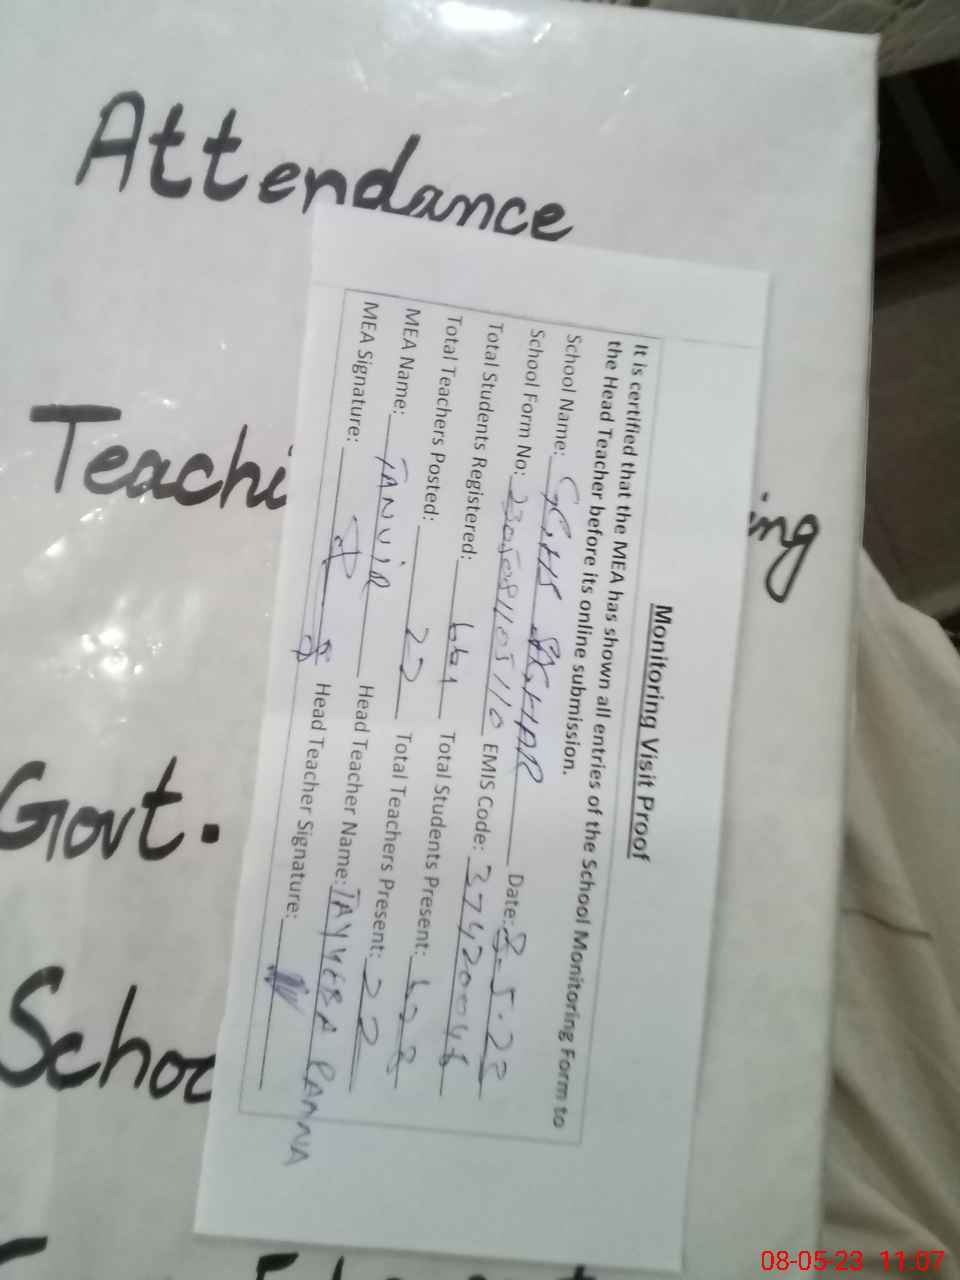 Attendance
Teachi ing
Govt.
Schoo
Monitoring Visit Proof
It is certified that the MEA has shown all entries of the School Monitoring Form to
the Head Teacher before its online submission.
School Name: GGHS Date: 8-5-23
School Form No: EMIS Code:
Total Students Registered: 661 Total Students Present:
Total Teachers Posted: 22 Total Teachers Present: 22
MEA Name: TANVIR Head Teacher Name: TAYYEBA
MEA Signature: Head Teacher Signature:
08-05-23 11:07